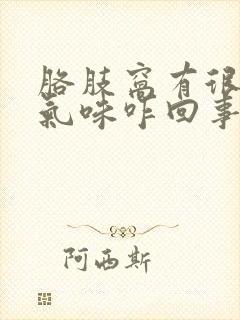 胳肢窝有很
气味咋回事
阿西斯